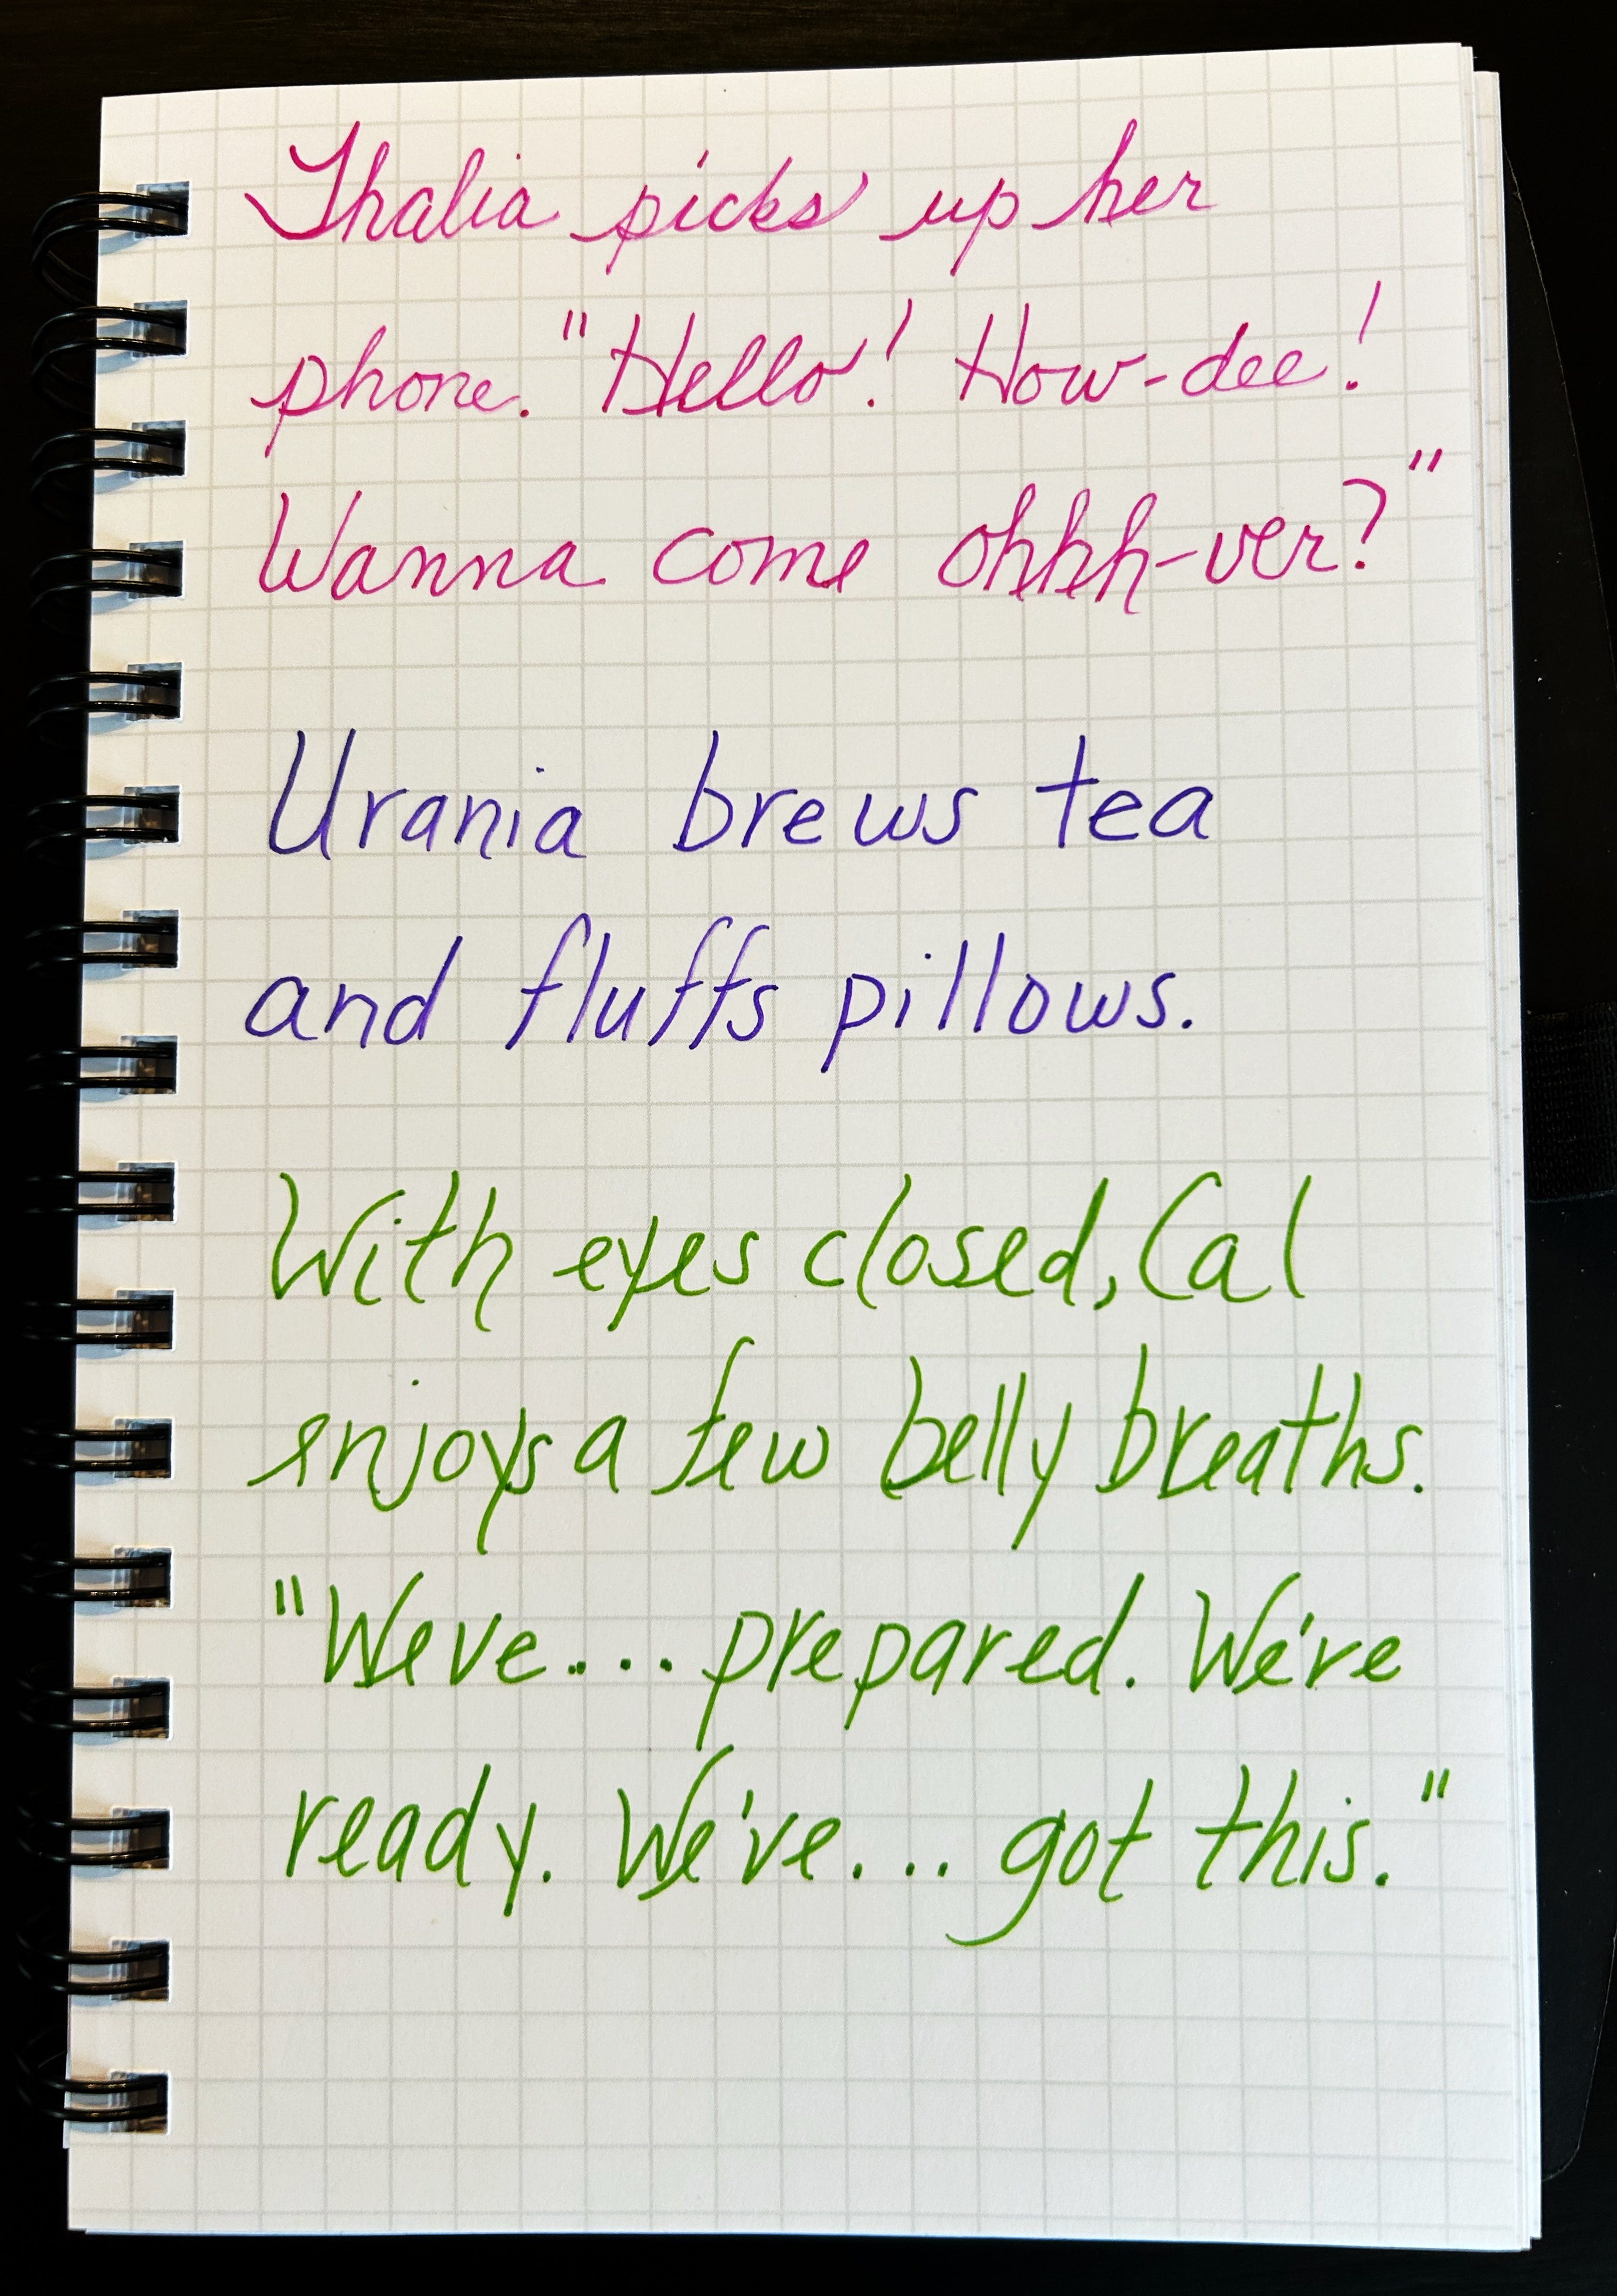 Thalia picks up her
phone. "Hello! How-dee!
Wanna come ohhh-ver?"
Urania brews tea
and fluffs pillows.
With eyes closed, Cal
enjoys a few belly breaths.
"Weve.... prepared. We're
ready. We've... got this."